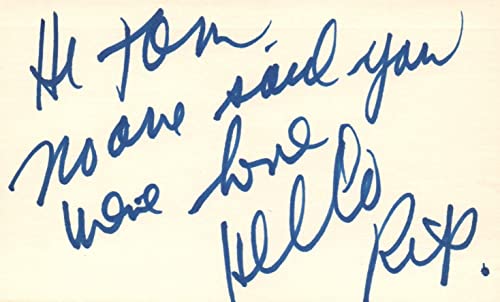 Hi Tom
No one said you
were here
Hello